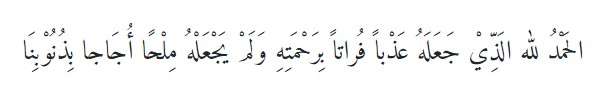 الحَمْدُ لله الَذِّيْ جَعَلَهُ عَذْباً فُراتاً بِرَحْمَتِهِ وَلَمْ يَجْعَلْهُ مِلْحًا أُجَاجا بِذُنُوْبِنَا